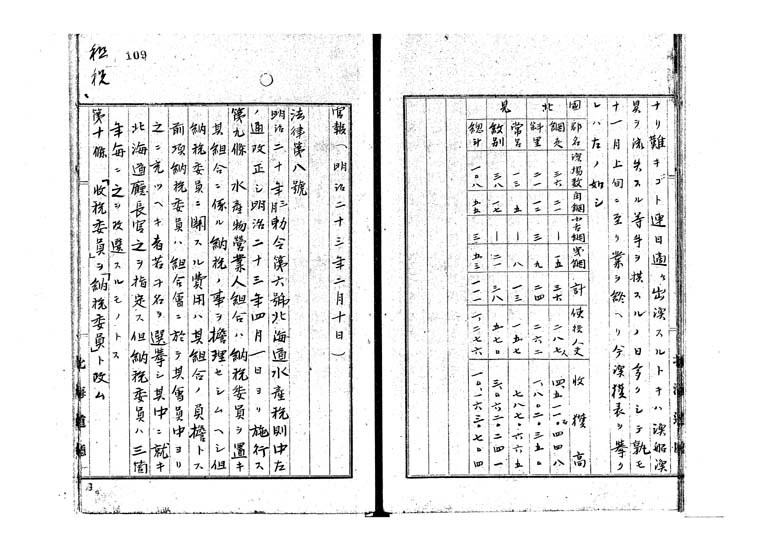 ナリ難キゴト連日適々出漁スルトキハ漁船漁
具ヲ流失スル等年ヲ揆スルノ日多クシテ孰モ
十一月上旬ニ至リ業ヲ終ヘリ今漁獲表ヲ挙ク
レハ左ノ如シ
國 北見
郡名 網走 斜里 常呂 紋別 總計
漁場数 三六 二一 一三 三八 一〇八
計 三六 二四 一三 三八 一一一
使役人夫 二八七人 二六二 一五七 五七〇 一、二七六
收獲高
租税
109
官報(明治二十三年二月十日)
法律第八號
明治二十年三月勅令第六號北海道水産税則中左
ノ通改正シ明治二十三年四月一日ヨリ施行ス
第九條 水産物營業人組合ハ納税委員ヲ置キ
其組合ニ係ル納税ノ事ヲ擔理セシムヘシ但
納税委員ニ關スル費用ハ其組合ノ員擔トス
前項納税委員ハ組合會ニ於テ其會員中ヨリ
之ニ充ツヘキ者若干名ヲ選挙シ其中ニ就キ
北海道廳長官之ヲ指定ス但納税委員ハ三箇
年毎ニ之ヲ改選スルモノトス
第十條 「收税委員」ヲ「納税委員」ト改ム
北海道廳